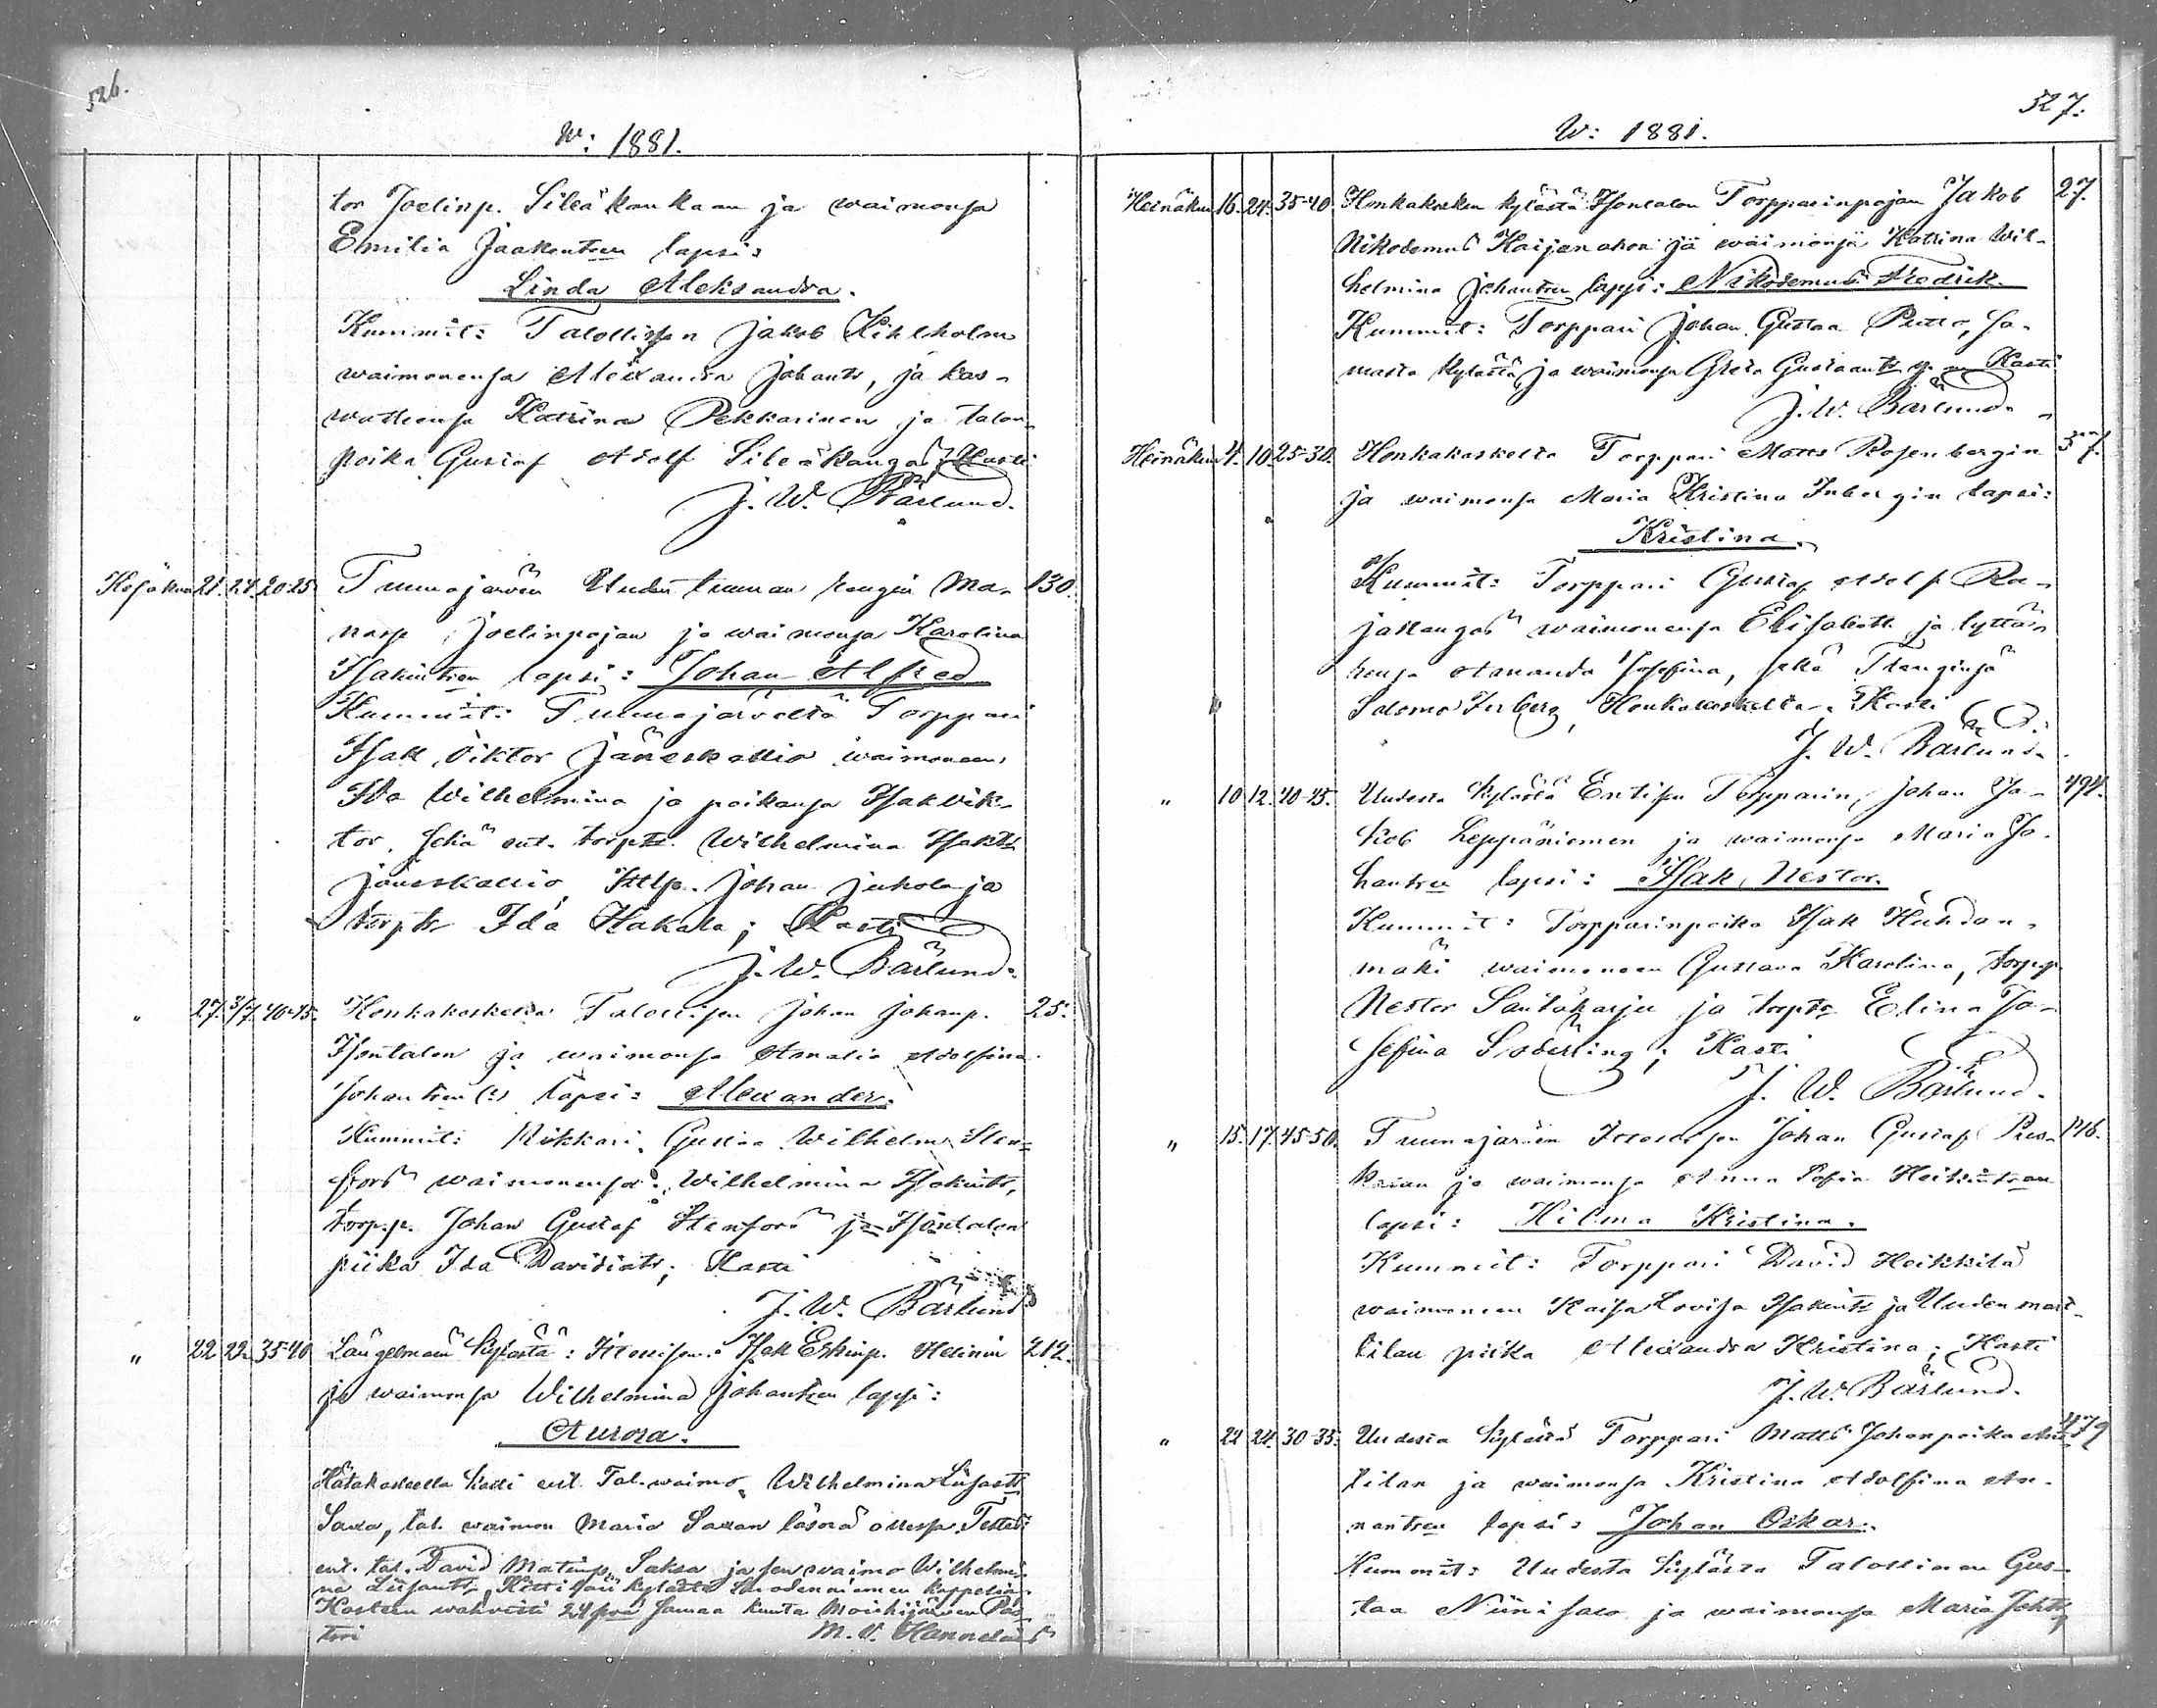 526.
W: 1881.
tor Joelinp. Sileäkankaan ja waimonsa
Emilia Jaakontren lapsi:
Linda Aleksandra.
Kummit: Talollisen Jakob Kihlholm
waimonensa Alexandra Johantr, ja kas-
wattensa Katrina Pekkarinen ja talon-
poika Gustaf Adolf Sileäkangas; Kasti
J. W. Bärlund.
Kesäkuu 21. 24. 20-25. Tuunajärven Uuden tuunan rengin Ma- 130.
nasse Joelinpojan ja waimonsa Karolina
Isakintren lapsi: Johan Alfred
Kummit: Tuunajärveltä Torppari
Isak Viktor Jäneskallio waimoneen
Ida Wilhelmina ja poikansa Isak Vik-
tor, sekä ent. torptr. Wilhelmina Isaktr
Jäneskallio, Itllp. Johan Juhola ja
torptr Ida Hakala; Kasti
J. W. Bärlund.
" 27. 3/7. 40-45. Honkakoskelta Talollisen Johan Johanp. 25.
Isontalon ja waimonsa Amalia Adolfina
Johantren (:) lapsi: Alexander.
Kummit: Nikkari Gustaa Wilhelm Sten-
fors waimonensa Wilhelmina Isakintr,
torp.p. Johan Gustaf Stenfors ja Isontalon
piika Ida Davidintr; Kasti
J. W. Bärlund
" 22 22. 35-40 Längelmäen kylästä: Itsellisen Isak Eskinp. Heinin 212.
ja waimonsa Wilhelmina Johantren lapsi:
Aurora.
Hätäkasteella kasti ent. Tal. waimo Wilhelmina Liisantr
Saxa, tal. waimon Maria Saxan läsnä ollessa. Testasi
ent. tal. David Matinp. Saksa ja sen waimo Wilhelmi-
na Liisantr kylästä Suodenniemen kappelia.
Kasteen wahvisti 24 p:nä samaa kuuta Mouhijärven Pas-
tori M. V. Hannelius
527.
W: 1881.
Heinäkuu 16. 24. 35-40. Honkakosken kylästä Isontalon Torpparinpojan Jakob 27.
Nikodemus Haijanahon ja waimonsa Katrina Wil-
helmina Johantren lapsi: Nikodemus Fredrik.
Kummit: Torppari Johan Gustaa Putto, sa-
masta kylästä ja waimonsa Greta Gustaantr Kasti
J. W. Bärlund.
Heinäkuu 4. 10. 25-30. Honkakoskelta Torppari Matts Rosenbergin 37.
ja waimonsa Maria Kristina Inbergin lapsi:
Kristina.
Kummit: Torppari Gustaf Adolf Ra-
jakangas waimonensa Elisabeth ja tyttä-
rensa Amanda Josefina, sekä
Salomo Inberg, Honkakoskelta; Kasti
J. W. Bärlund.
" 10. 12. 40-45. Uudesta kylästä Torpparin, Johan Ja- 494.
kob Leppäniemen ja waimonsa Maria Jo-
hantren lapsi: Isak Nestor.
Kummit: Torpparinpoika Isak Huhdan-
mäki waimoneen Gustava Karolina, torp.p.
Nestor Santaharju ja torptr Elina Jo-
sefina Söderling; Kasti
J. W. Bärlund.
" 15. 17. 45-50. Tuunajärven Itsellisen Johan Gustaf Pus- 146.
kaian ja waimonsa Anna Sofia Heikintren
lapsi: Hilma Kristina.
Kummit: Torppari David Heikkilä
waimoneen Kaisa Lovisa Isakintr ja Uuden mart-
tilan piika Alexandra Kristina; Kasti
J. W. Bärlund.
" 22 24. 30-35. Uudesta kylästä Torppari Matts Johanpoika 479
tilan ja waimonsa Kristina Adolfina An-
nantren lapsi: Johan Oskar.
Kummit: Uudesta kylästä Talollinen Gus-
taa Niinisalo ja waimonsa Maria Johtr,